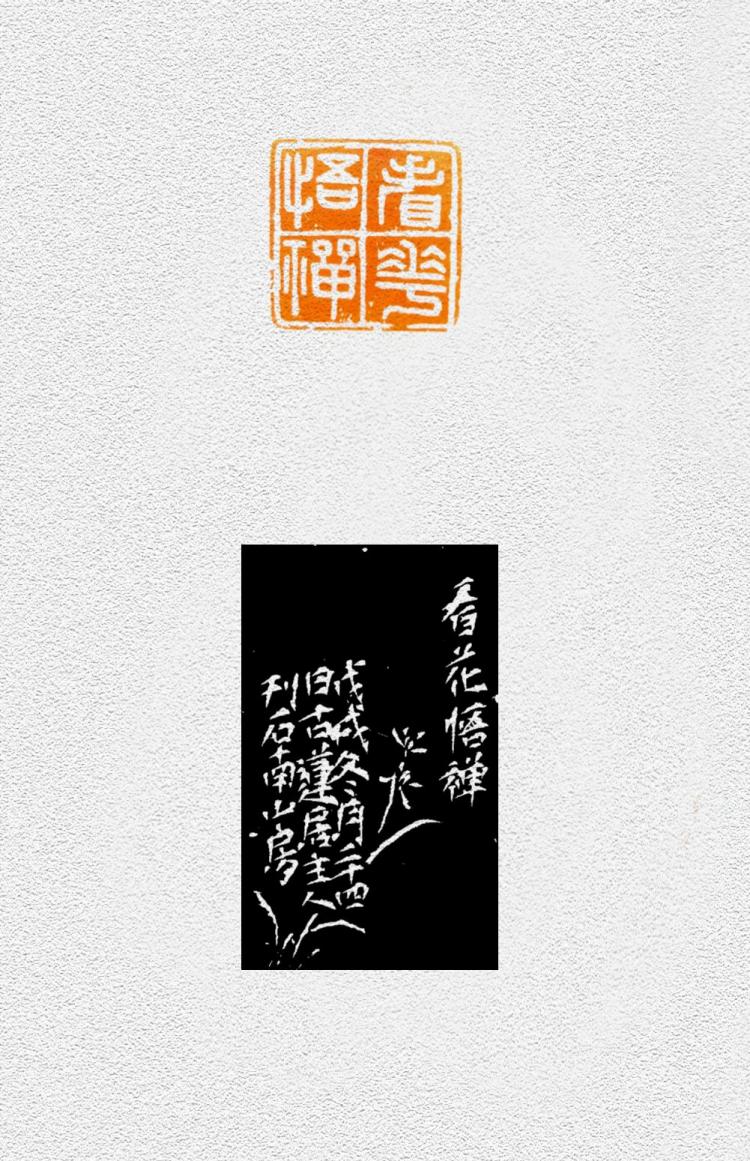 看花
悟禅
看花悟禅
戊戌冬月二十四
日古莲居主人
刊石南山房